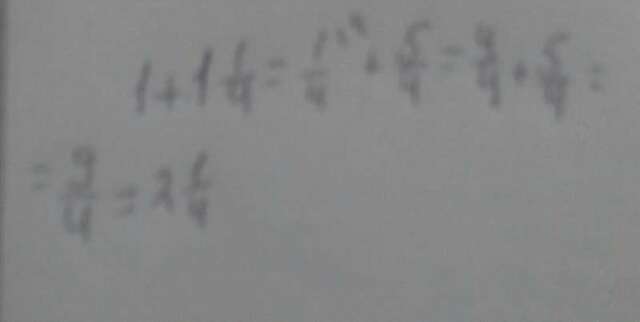 1+1 1/4 = 1/4 + 5/4 = 4/4 + 5/4 =
= 9/4 = 2 1/4